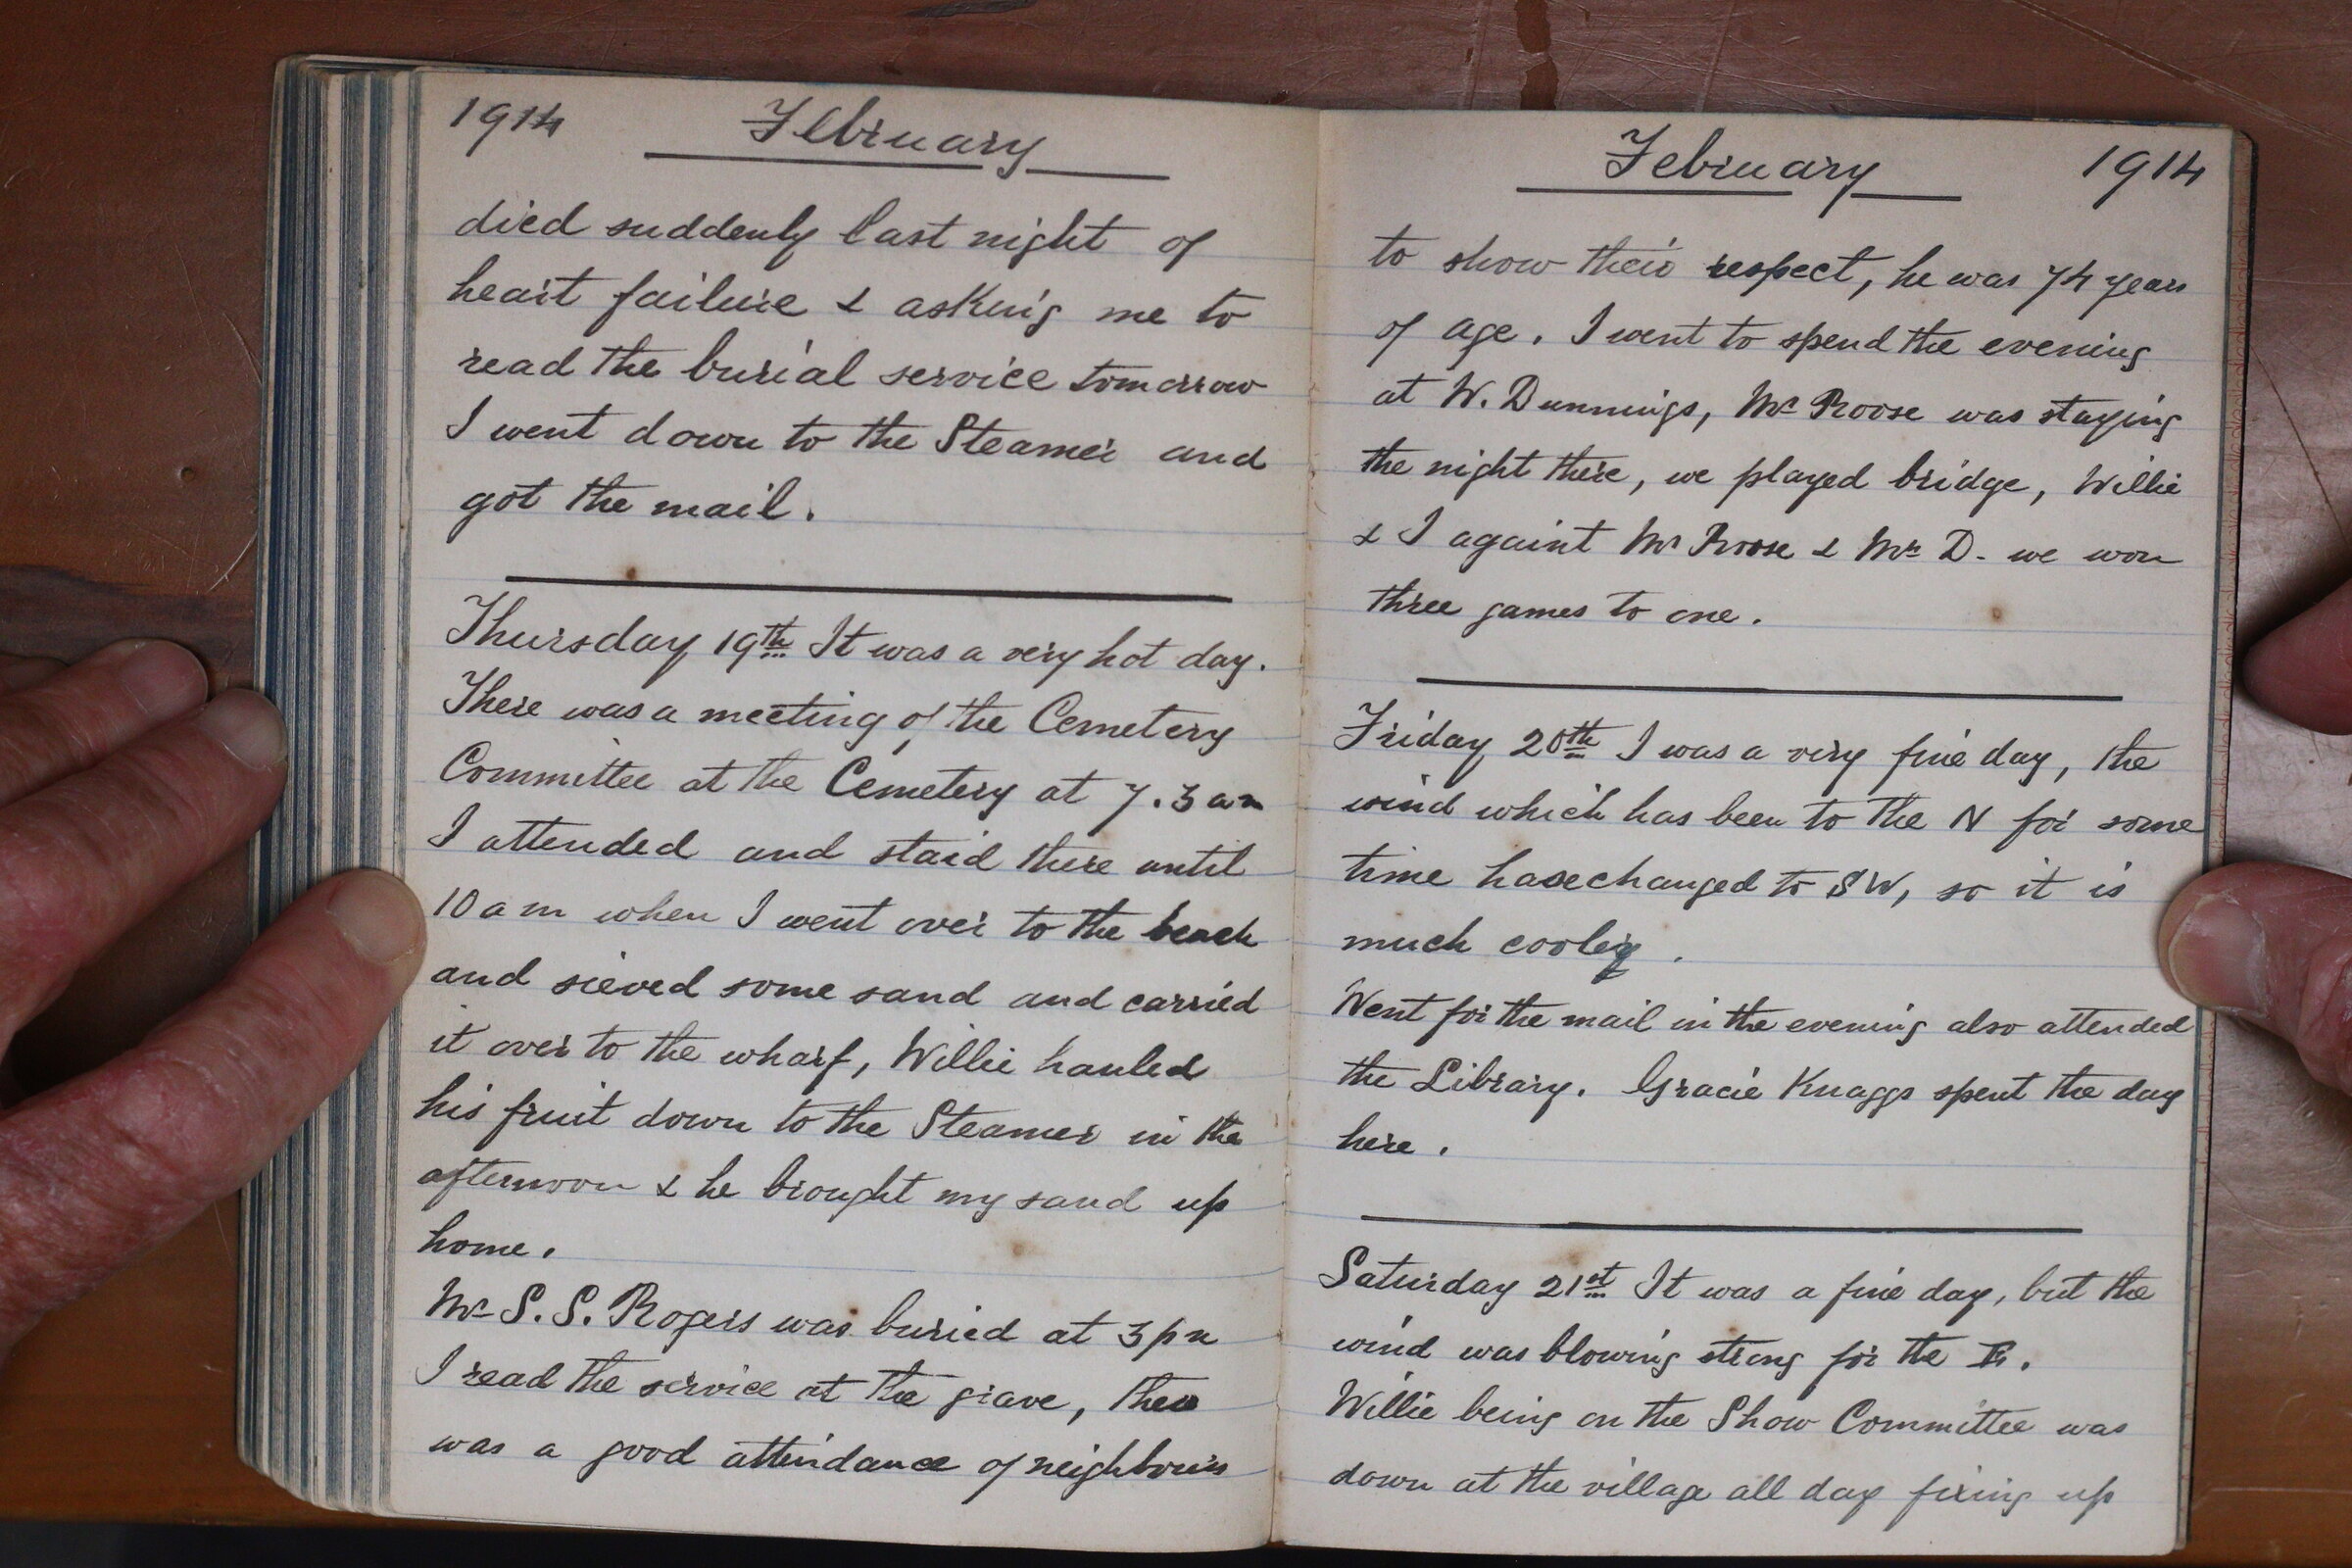 1914 February
died suddenly last night of
heart failure & asking me to
read the burial service tomorrow
I went down to the Steamer and
got the mail.
Thursday 19th It was a very hot day.
There was a meeting of the Cemetery
Committee at the Cemetery at 7.3 am
I attended and staid there until
10 am when I went over to the beach
and sieved some sand and carried
it over to the wharf, Willie hauled
his fruit down to the Steamer in the
afternoon & he brought my sand up
home.
Mr S. S. Rogers was buried at 3 pm
I read the service at the grave, there
was a good attendance of neighbours
February 1914
to show their respect, he was 74 years
of age. I went to spend the evening
at W. Dunnings, Mr Roose was staying
the night there, we played bridge, Willie
& I againt Mr Roose & Mr D. we won
three games to one.
Friday 20th I was a very fine day, the
wind which has been to the N for some
time has changed to SW, so it is
much cooler.
Went for the mail in the evening also attended
the Library. Gracie Knaggs spent the day
here.
Saturday 21st It was a fine day, but the
wind was blowing strong for the E.
Willie being on the Show Committee was
down at the village all day fixing up